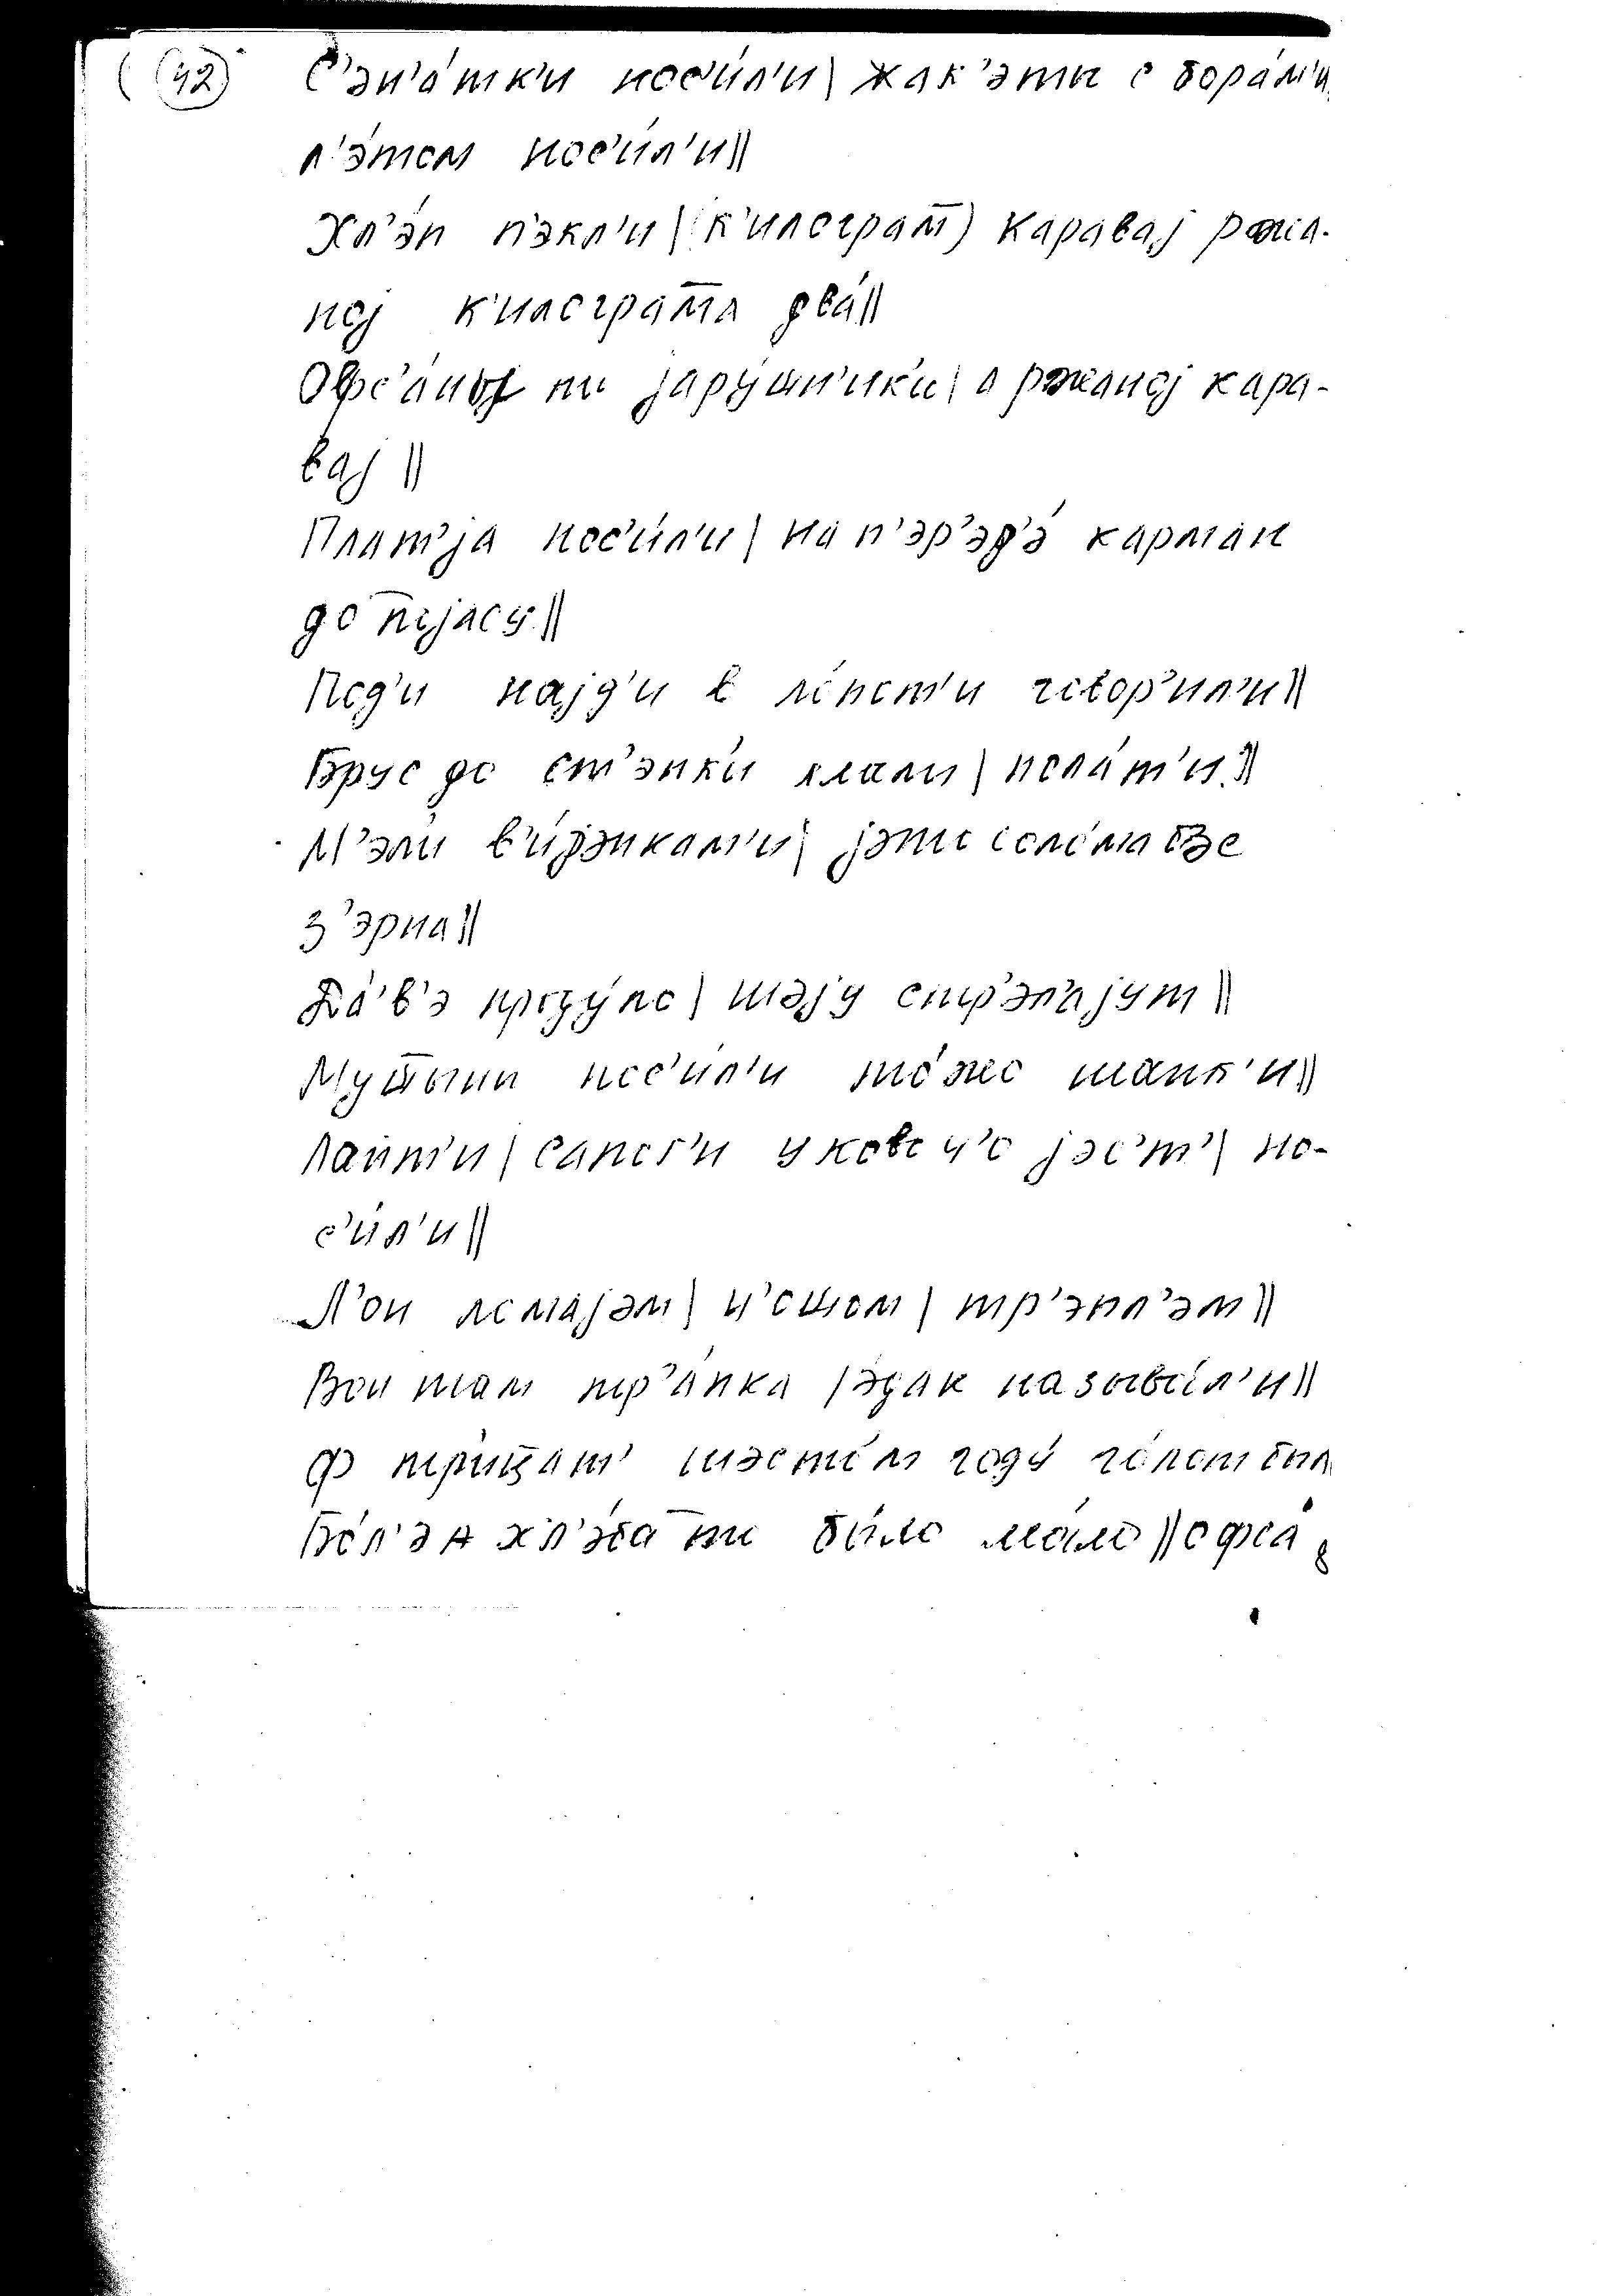 (42) С'эн'а́тк'и нос'и́л'и| жак'эты с бора́м'и
л'э́том нос'и́л'и||
Хл'э́п п'экл'и| (к'илограм̅) каравај ржа-
ној к'илограм̅а два́||
то јару́шн'ик'и| а ржаној кара-
вај ||
Плат'ја нос'и́л'и| на п'эр'эд'э́ карман
до по̅јасу||
Под'и најд'и в ло́пот'и говор'ил'и||
Брус до ст'энк'и клали| пола́т'и||
М'эли в'и́јэнкам'и| јэто соло́ма без
з'эрна||
продýло| шэју стр'эл'ајут||
нос'и́л'и то́жо шапк'и||
Лапт'и| сапог'и у ково ч'о јэс'т'| но-
с'и́л'и||
Л'он ломајэм| ч'ошом| тр'эпл'эм||
Вон там тр'а́пка |э́дак называ́л'и||
Ф три́цат' шэсто́м году́ го́лот был
хл'э́ба то бы́ло ма́ло||